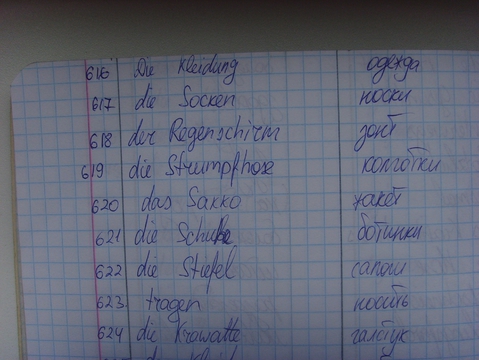 616 Die Kleidung одежда
617 die Socken носки
618 der Regenschirm зонт
619 die Strumpfhose колготки
620 das Sakko жакет
621 die Schuhe ботинки
622 die Stiefel сапоги
623 tragen носить
624 die Krawatte галстук